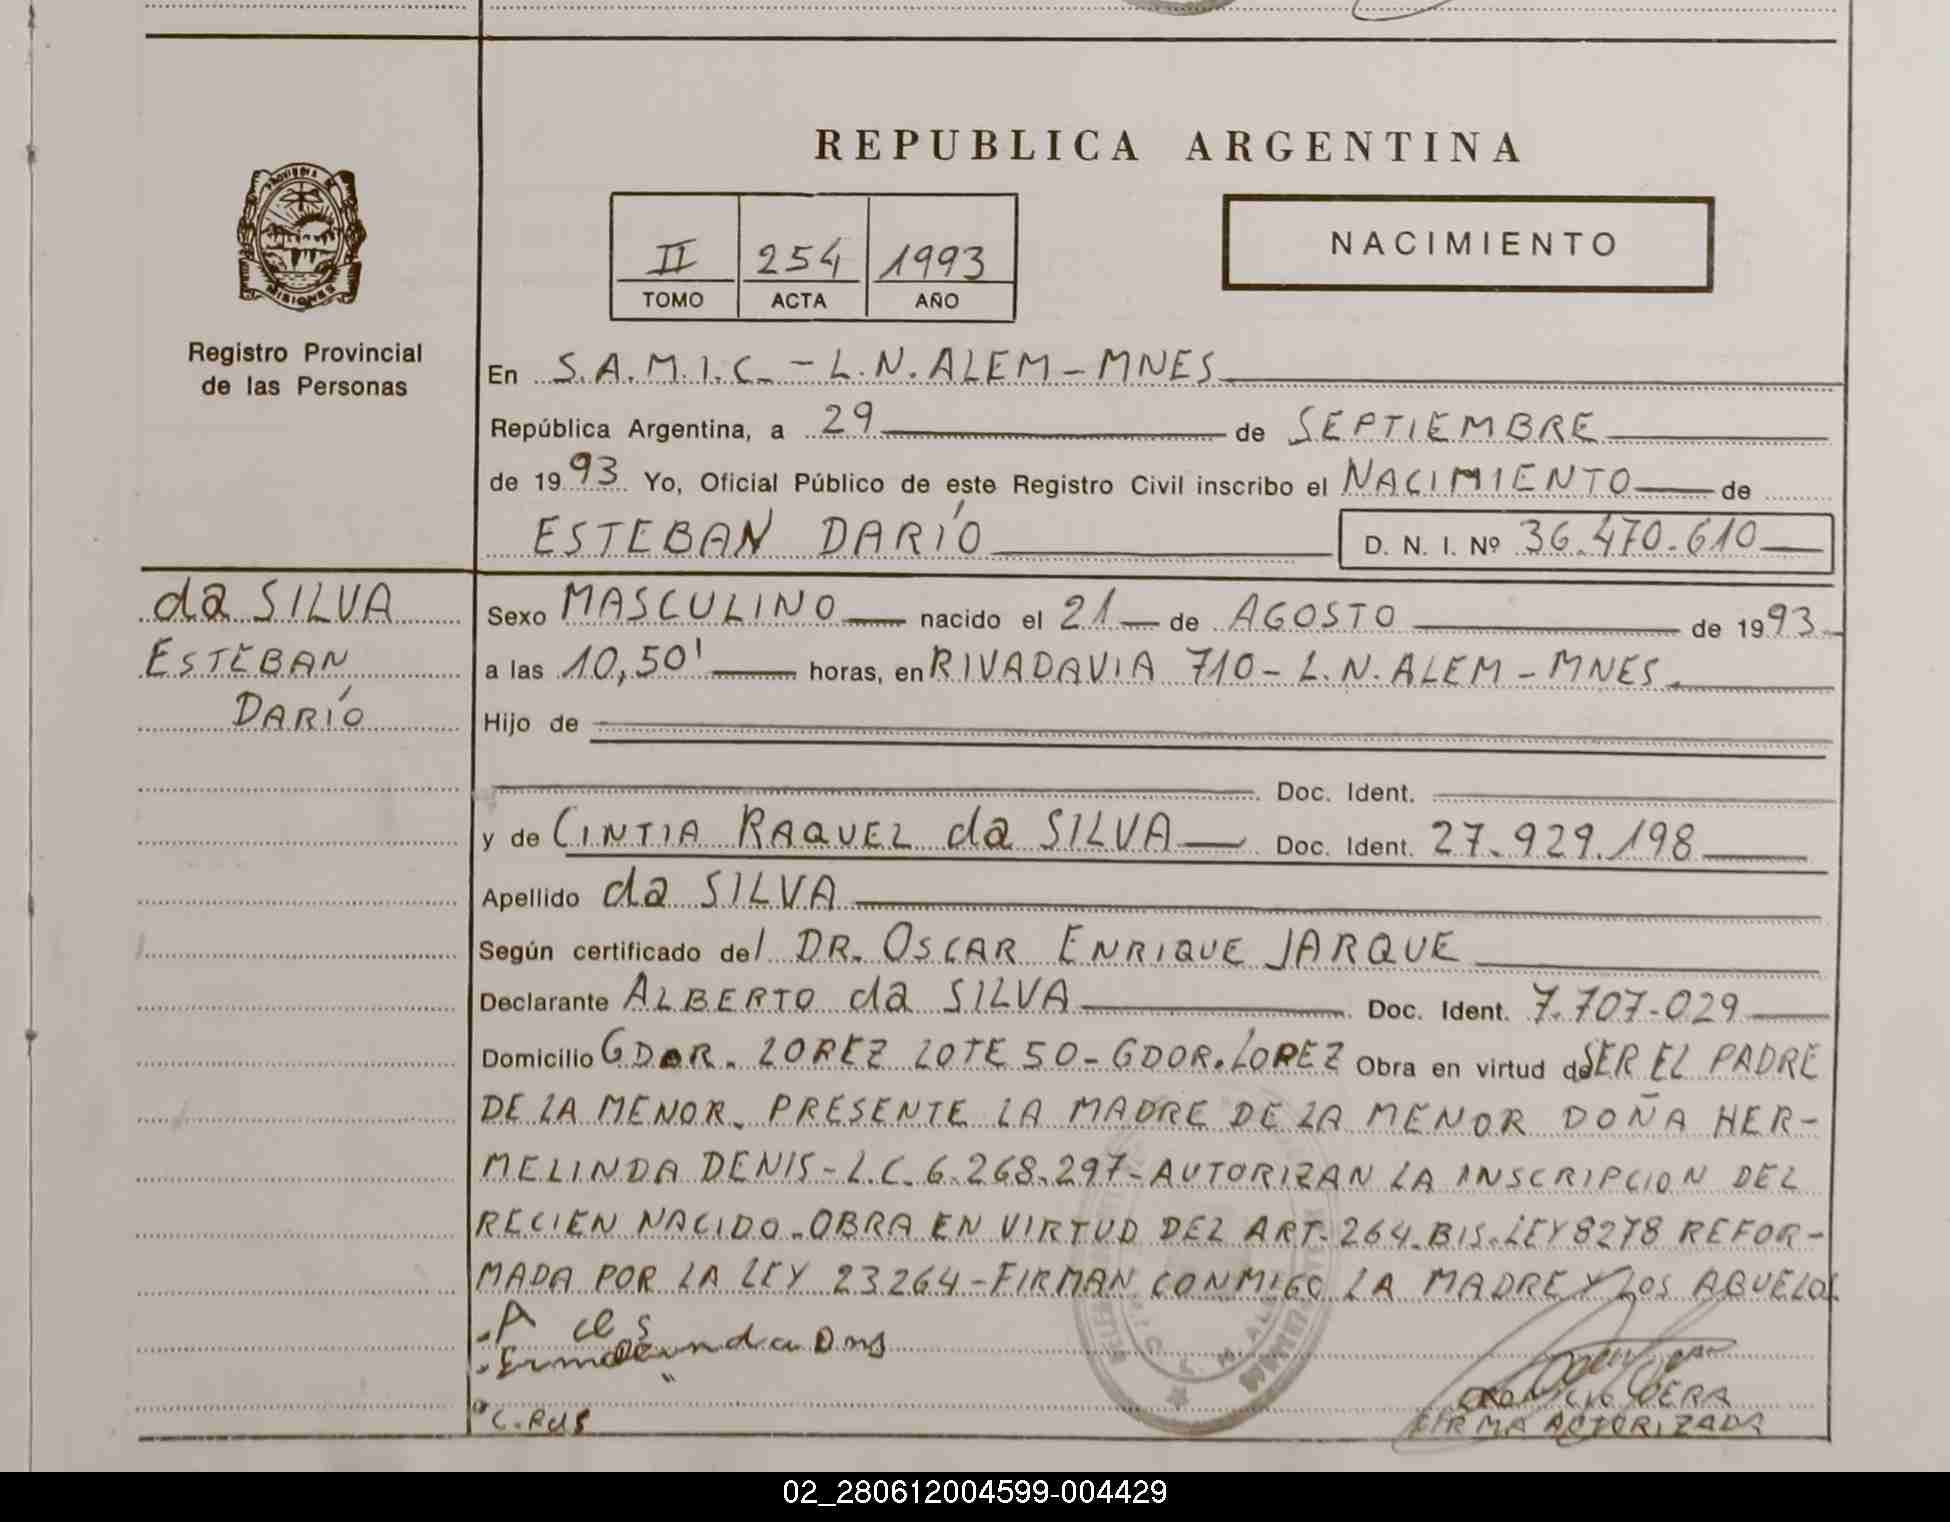 REPUBLICA ARGENTINA
PROVINCIA DE
MISIONES
II 254 1993
TOMO ACTA AÑO
NACIMIENTO
Registro Provincial
de las Personas
En S.A.M.I.C. - L.N. ALEM - MNES
República Argentina, a 29 de SEPTIEMBRE
de 1993 Yo, Oficial Público de este Registro Civil inscribo el NACIMIENTO de
ESTEBAN DARÍO D. N. I. Nº 36.470.610
da SILVA
ESTEBAN
DARÍO
Sexo MASCULINO nacido el 21 de AGOSTO de 1993
a las 10,50' horas, en RIVADAVIA 710 - L.N. ALEM - MNES.
Hijo de
Doc. Ident.
y de CINTIA RAQUEL da SILVA Doc. Ident. 27.929.198
Apellido da SILVA
Según certificado del DR. OSCAR ENRIQUE JARQUE
Declarante ALBERTO da SILVA Doc. Ident. 7.707.029
Domicilio GDOR. LOPEZ LOTE 50 - GDOR. LOPEZ Obra en virtud de SER EL PADRE
DE LA MENOR. PRESENTE LA MADRE DE LA MENOR DOÑA HER-
MELINDA DENIS - L.C. 6.268.297 - AUTORIZAN LA INSCRIPCION DEL
RECIEN NACIDO. OBRA EN VIRTUD DEL ART. 264. BIS. LEY 8278 REFOR-
MADA POR LA LEY 23264 - FIRMAN CONMIGO LA MADRE Y LOS ABUELOS
VERA
FIRMA AUTORIZADA
02_280612004599-004429